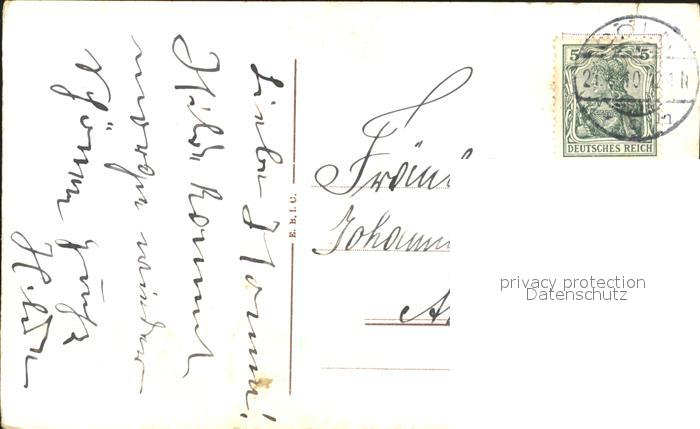 Liebe Hanna!
Hilde kommt
morgen wieder
Schönen Gruß
Hilde
E. B. i. C.
Fräul
Johann
A
5 5
DEUTSCHES REICH
CÖLN
privacy protection
Datenschutz